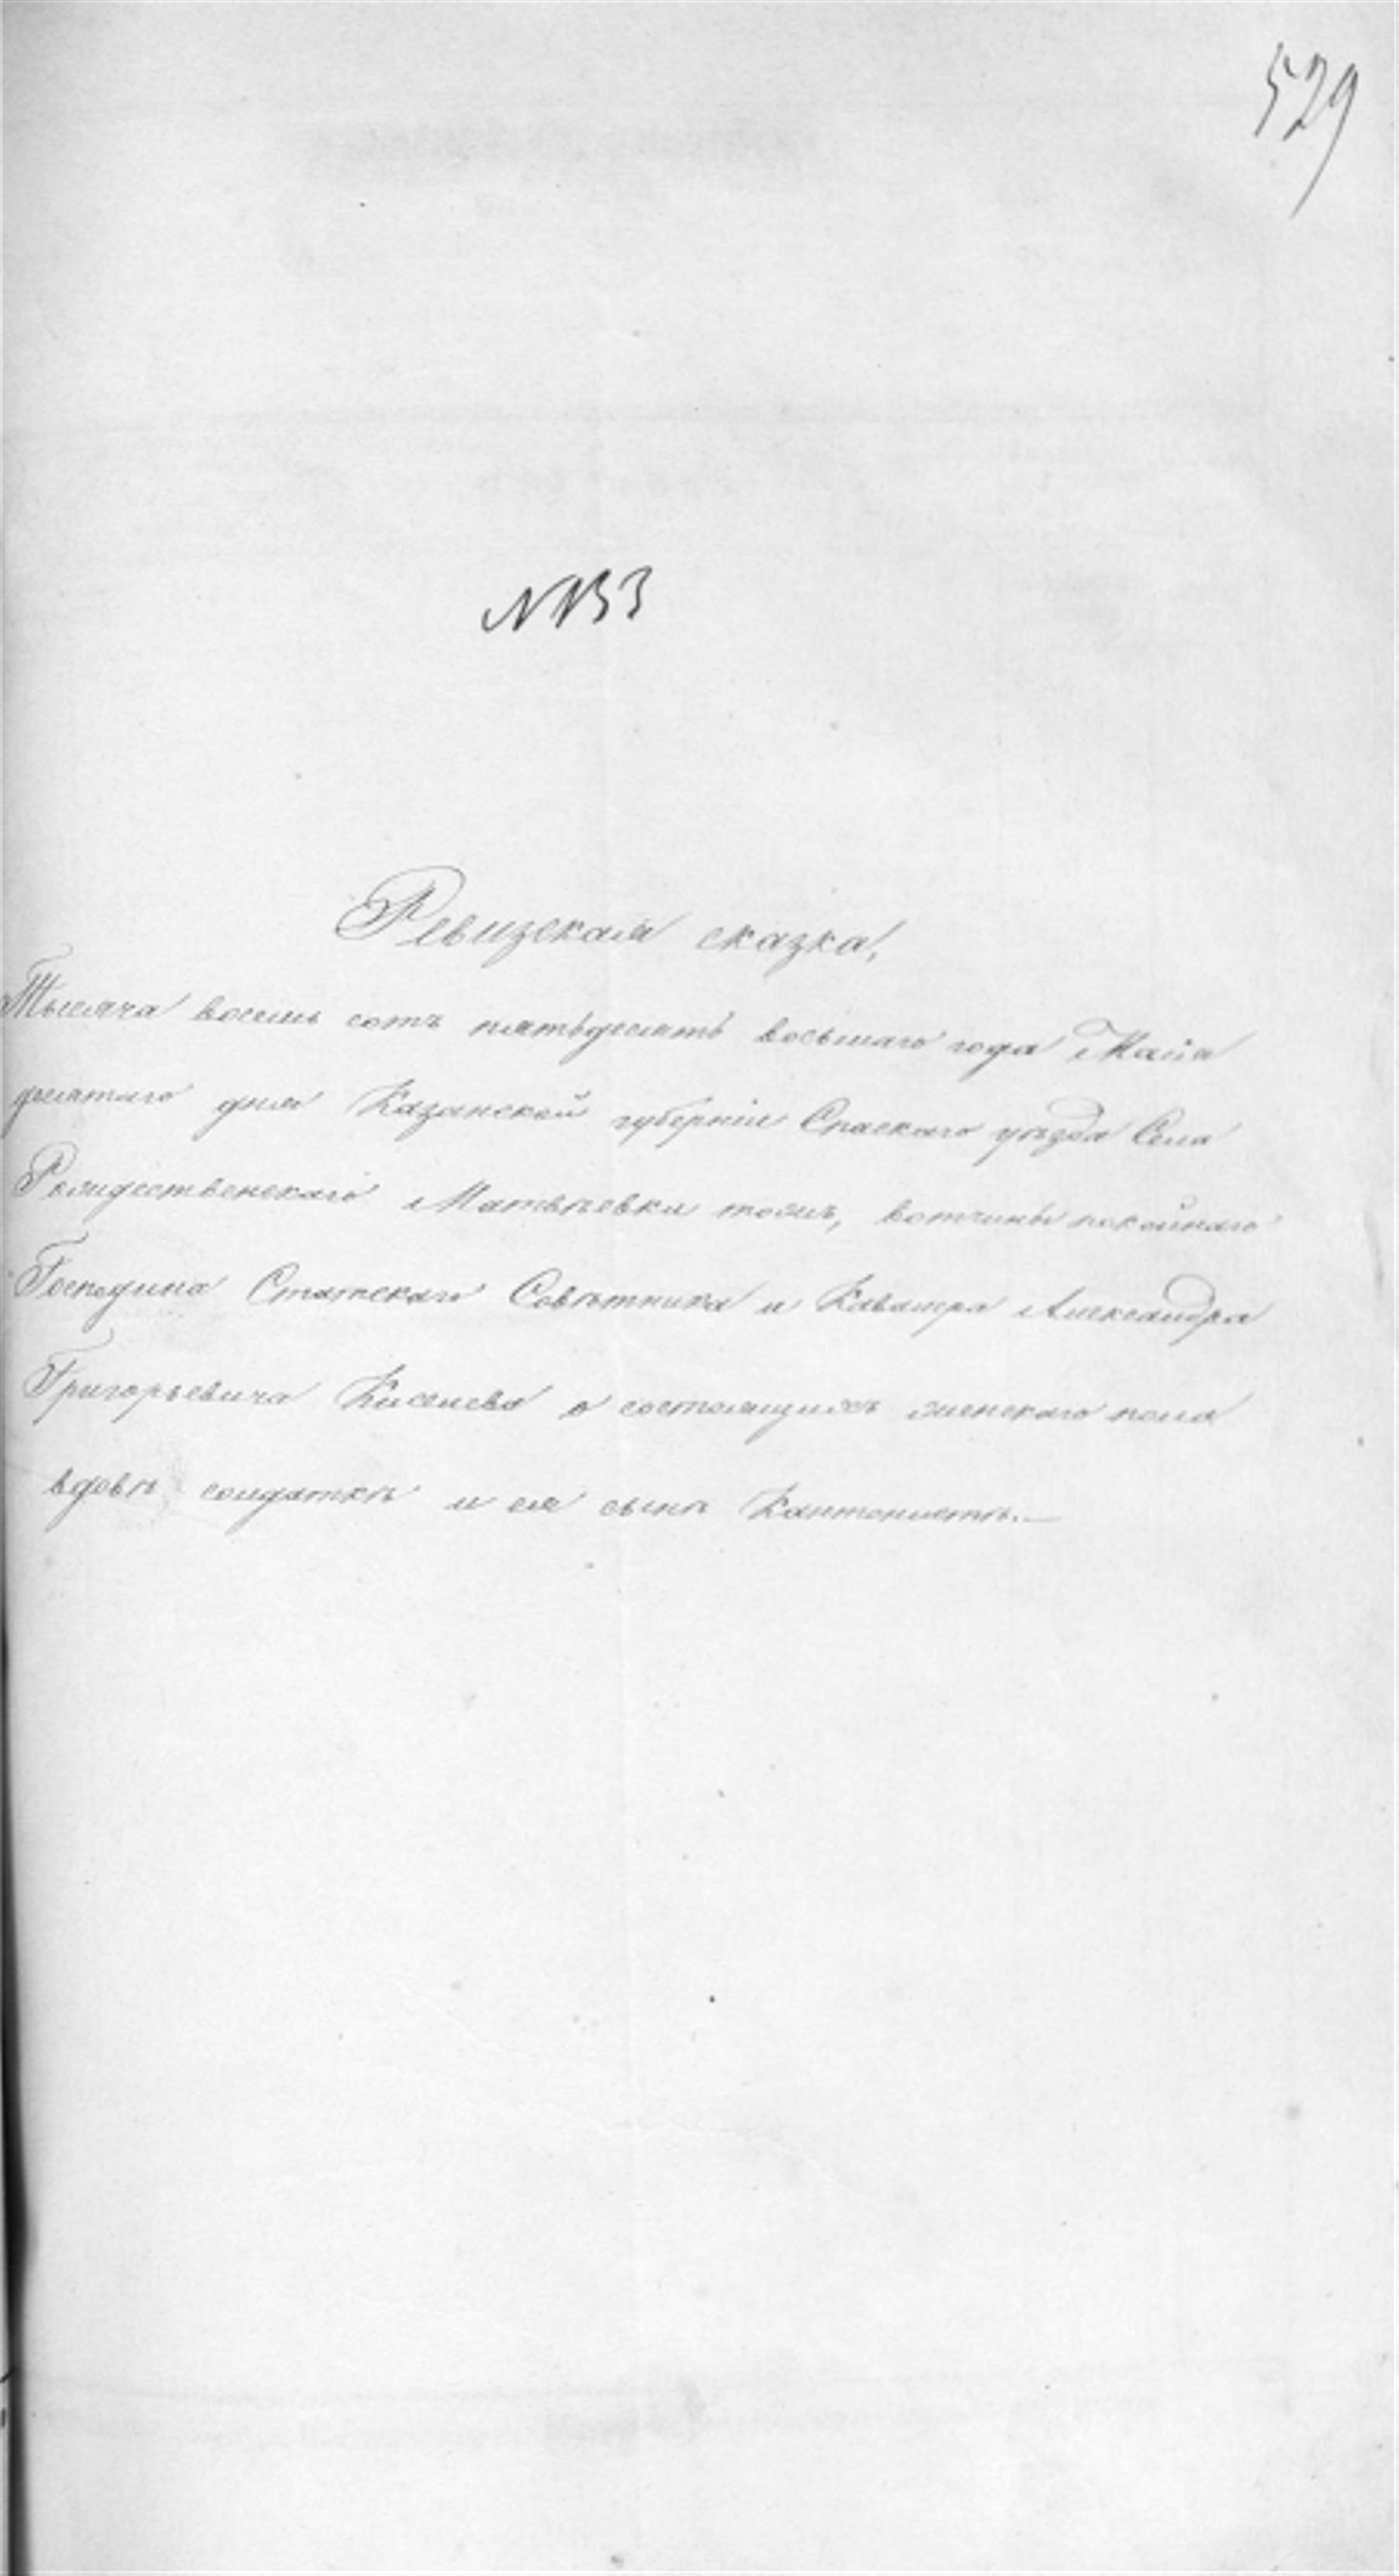 529
№ 133
Ревизская сказка,
Тысяча восемь сотъ пятьдесятъ восьмаго года Маія
десятаго дня Казанской губерніи Спаскаго уѣзда Села
Рождественскаго Матвѣевка тожъ, вотчины покойнаго
Господина Статскаго Совѣтника и Кавалера Александра
Григорьевича Киселева о состоящихъ женскаго пола
вдовѣ солдаткѣ и ея сынѣ Кантонистѣ.—